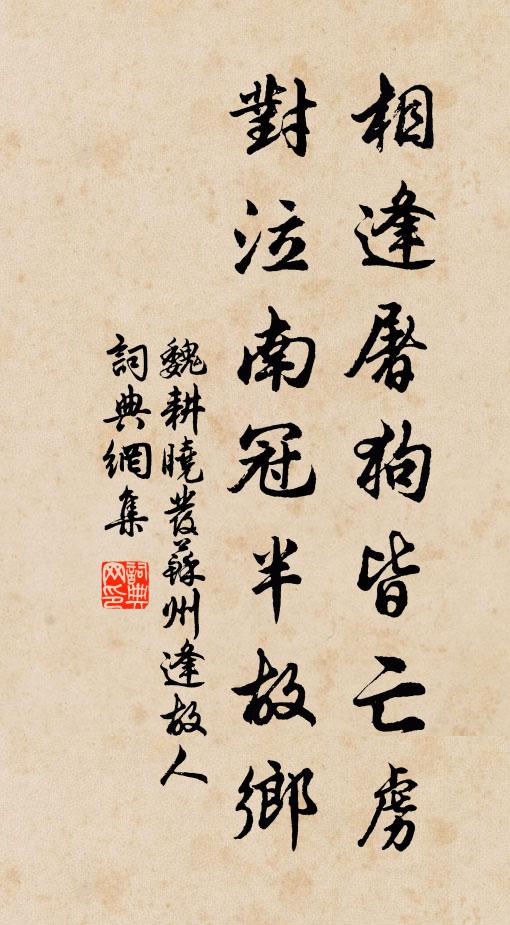 相逢屠狗皆亡虜
對泣南冠半故鄉
魏耕曉發蘇州逢故人
詞典網集
詞典網印